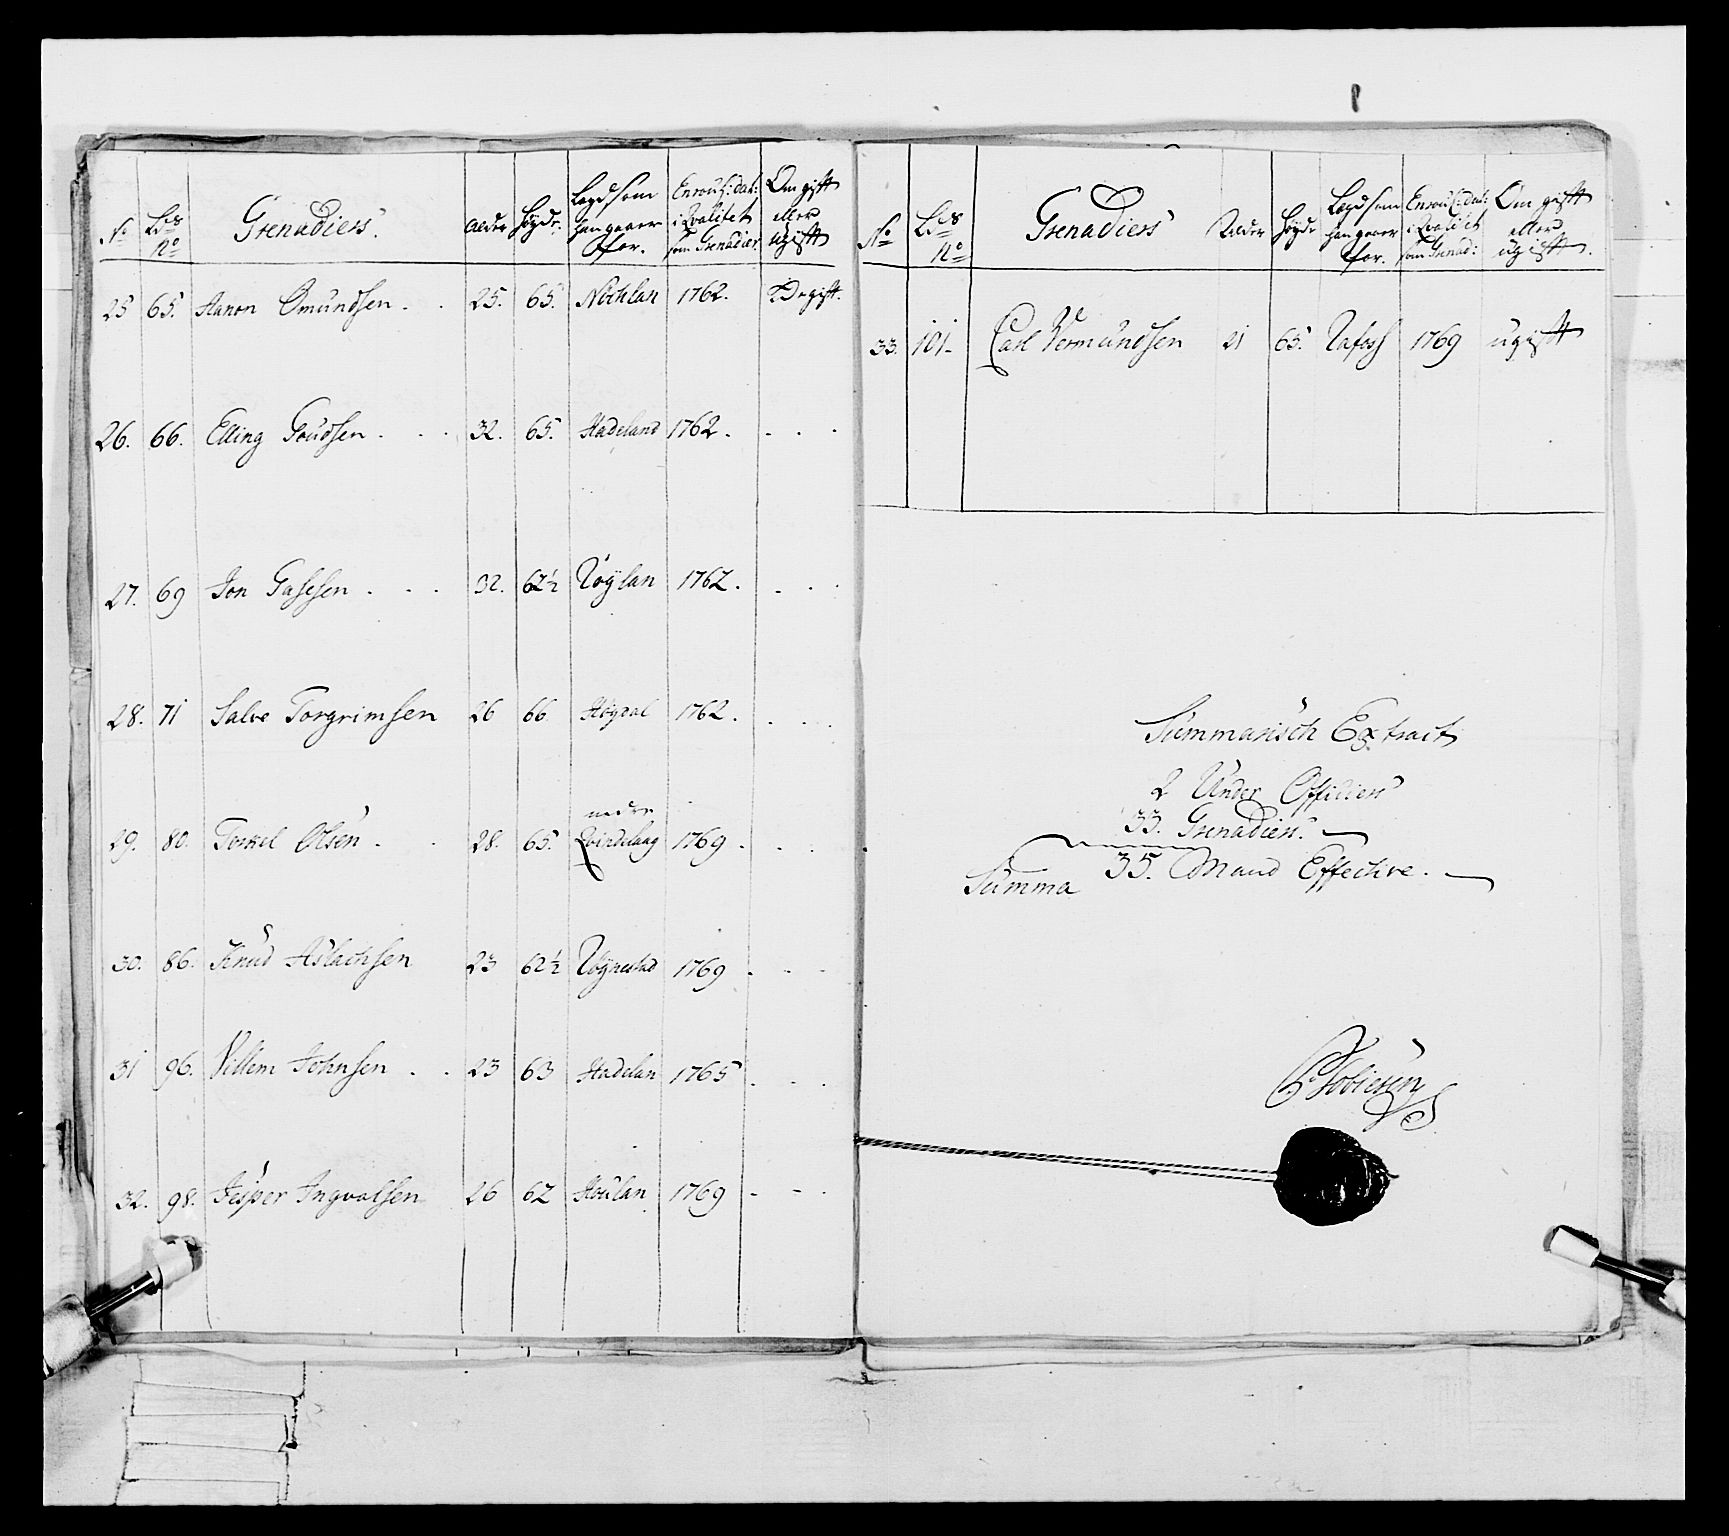 No Lds No Grenadiers. Alder Höyde. Legd som han gaaer for. Enroul: dat: i Qvalitet som Grenadier Om gift eller ugift
25 65. Aanon Omundsen . . 25. 65. 1762.
26. 66. Elling Goudsen . . . 32. 65. Hadeland 1762 . . . .
27. 69 Jon Gassesen . . . 32. 62½ Röysan 1762 . . . .
28. 71 Salve Torgrimsen 26 66 Högdal 1762 . . . .
29. 80. Torkel Olsen . . 28. 65. nedre Qvindelaag 1769 . . . .
30. 86. Knud Aslachsen 23 62½ Röynestad 1769 . . . .
31 96. Villem Johnsen . . 23 63 Hadelan 1765 . . . .
32. 98. Jesper Ingvalsen 26 62 Houlan 1769 - - .
No Lds No Grenadiers Alder Höyde Legd som han gaaer for. Enroul: dat: i Qvalitet som Grenad: Om gift eller ugift.
33. 101. Carl Vermundsen 21 63. Rafoss 1769 ugift
Summarisch Extract
2 Under Officiers
33. Grenadiers.
Summa 35. Mand Effective.
Tobiesen